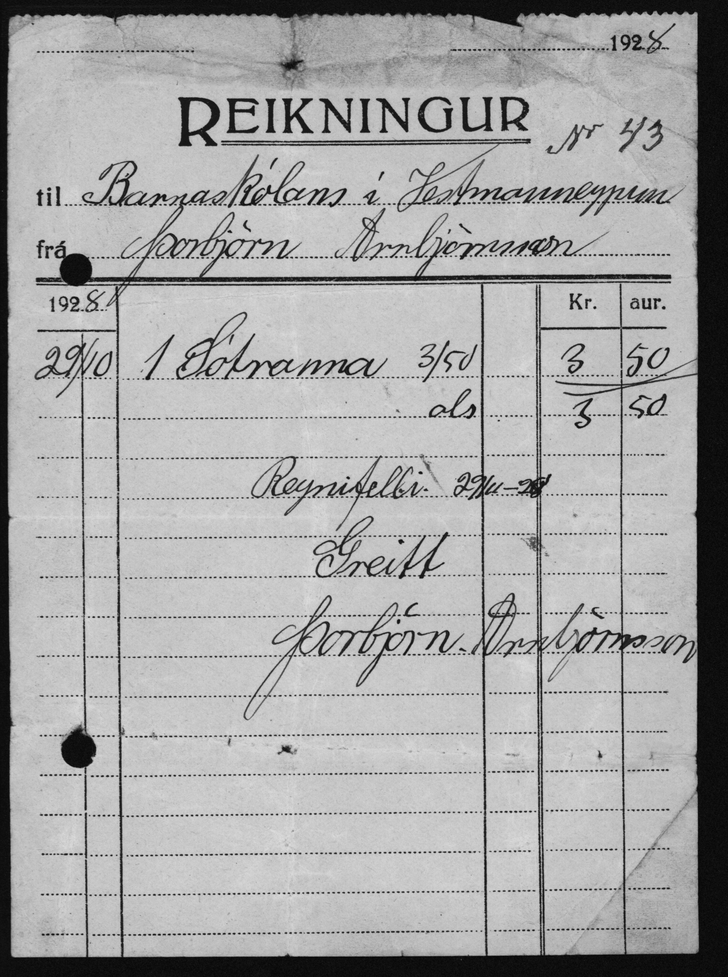 1928
REIKNINGUR
Nr 43
til Barnaskólans í Vestmanneyjum
frá Þorbjörn Arnbjörnsson
1928 Kr. aur.
29/10 1 Sótranna 3/50 3 50
als 3 50
Reynifelli 29/11-28
Greitt
Þorbjörn Arnbjörnsson